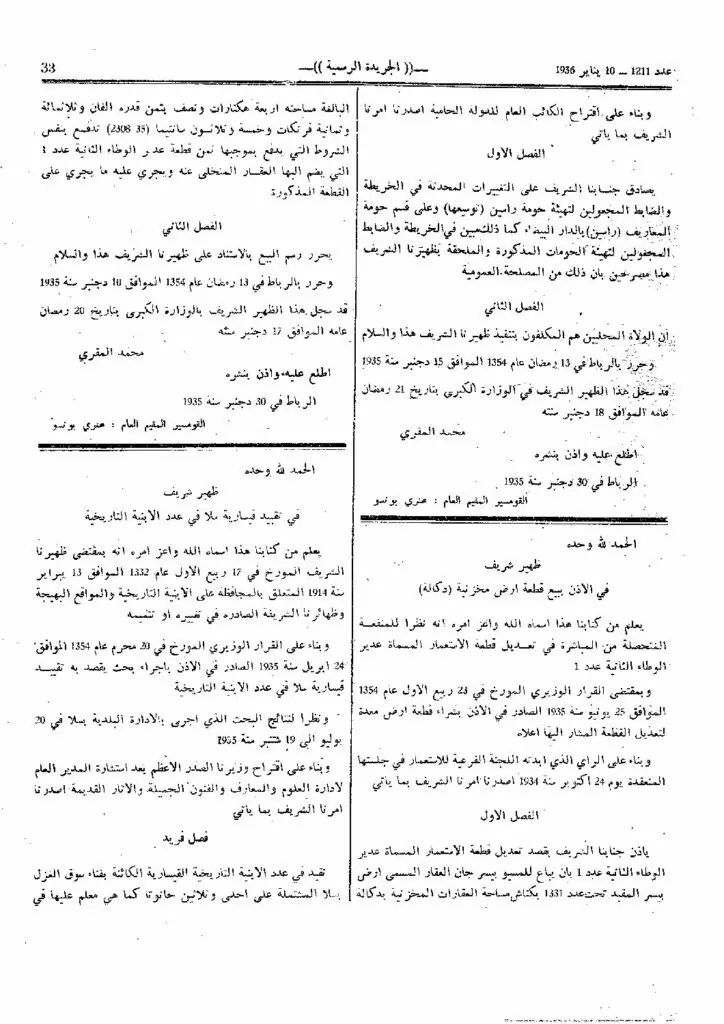 عدد 1211 ـ 10 يناير 1936
—(( الجريدة الرسمية ))—
33
وبناء على اقتراح الكاتب العام للدولة الحامية اصدرنا امرنا
الشريف بما ياتي
الفصل الاول
يصادق جنابنا الشريف على التغييرات المحدثة في الخريطة
والضابط المجعولين لتهيئة حومة راسين (توسيعها) وعلى قسم حومة
المعاريف (راسين) بالدار البيضاء كما ذلك مبين في الخريطة والضابط
المجعولين لتهيئة الحومات المذكورة والملحقة بظهيرنا الشريف
هذا مصرحين بان ذلك من المصلحة العمومية
الفصل الثاني
ان الولاة المحليين هم المكلفون بتنفيذ ظهيرنا الشريف هذا والسلام
وحرر بالرباط في 13 رمضان عام 1354 الموافق 15 دجنبر سنة 1935
قد سجل هذا الظهير الشريف في الوزارة الكبرى بتاريخ 21 رمضان
عامه الموافق 18 دجنبر سنته
محمد المقري
اطلع عليه واذن بنشره
الرباط في 30 دجنبر سنة 1935
القومسير المقيم العام : هنري بونسو
الحمد لله وحده
ظهير شريف
في الاذن ببيع قطعة ارض مخزنية (دكالة)
يعلم من كتابنا هذا اسماه الله واعز امره انه نظرا للمنفعة
المتحصلة من المباشرة في تعديل قطعة الاستعمار المسماة غدير
الوطاء الثانية عدد 1
وبمقتضى القرار الوزيري المورخ في 23 ربيع الاول عام 1354
الموافق 25 يونيو سنة 1935 الصادر في الاذن بشراء قطعة ارض معدة
لتعديل القطعة المشار اليها اعلاه
وبناء على الراي الذي ابدته اللجنة الفرعية للاستعمار في جلستها
المنعقدة يوم 24 اكتوبر سنة 1934 اصدرنا امرنا الشريف بما ياتي
الفصل الاول
ياذن جنابنا الشريف بقصد تعديل قطعة الاستعمار المسماة غدير
الوطاء الثانية عدد 1 بان يباع للمسيو بيسر جان العقار المسمى ارض
بيسر المقيد تحت عدد 1331 بكناش مساحة العقارات المخزنية بدكالة
البالغة مساحته اربعة هكتارات ونصف بثمن قدره الفان وثلاثمائة
وثمانية فرنكات وخمسة وثلاثون سانتيما (2308 35) تدفع بنفس
الشروط التي يدفع بموجبها ثمن قطعة غدير الوطاء الثانية عدد 1
التي يضم اليها العقار المتخلى عنه ويجري عليه ما يجري على
القطعة المذكورة
الفصل الثاني
يحرر رسم البيع بالاستناد على ظهيرنا الشريف هذا والسلام
وحرر بالرباط في 13 رمضان عام 1354 الموافق 10 دجنبر سنة 1935
قد سجل هذا الظهير الشريف بالوزارة الكبرى بتاريخ 20 رمضان
عامه الموافق 17 دجنبر سنته
محمد المقري
اطلع عليه واذن بنشره
الرباط في 30 دجنبر سنة 1935
القومسير المقيم العام : هنري بونسو
الحمد لله وحده
ظهير شريف
في تقييد قيسارية سلا في عدد الابنية التاريخية
يعلم من كتابنا هذا اسماه الله واعز امره انه بمقتضى ظهيرنا
الشريف المورخ في 17 ربيع الاول عام 1332 الموافق 13 يبراير
سنة 1914 المتعلق بالمحافظة على الابنية التاريخية والمواقع البهيجة
وظهائرنا الشريفة الصادرة في تغييره او تتميمه
وبناء على القرار الوزيري المورخ في 20 محرم عام 1354 الموافق
24 ابريل سنة 1935 الصادر في الاذن باجراء بحث يقصد به تقييد
قيسارية سلا في عدد الابنية التاريخية
ونظرا لنتائج البحث الذي اجرى بالادارة البلدية بسلا في 20
يوليو الى 19 شتنبر سنة 1935
وبناء على اقتراح وزيرنا الصدر الاعظم بعد استشارة المدير العام
لادارة العلوم والمعارف والفنون الجميلة والاثار القديمة اصدرنا
امرنا الشريف بما ياتي
فصل فريد
تقيد في عدد الابنية التاريخية القيسارية الكائنة بفناء سوق الغزل
بسلا المشتملة على احدى وثلاثين حانوتا كما هي معلم عليها في